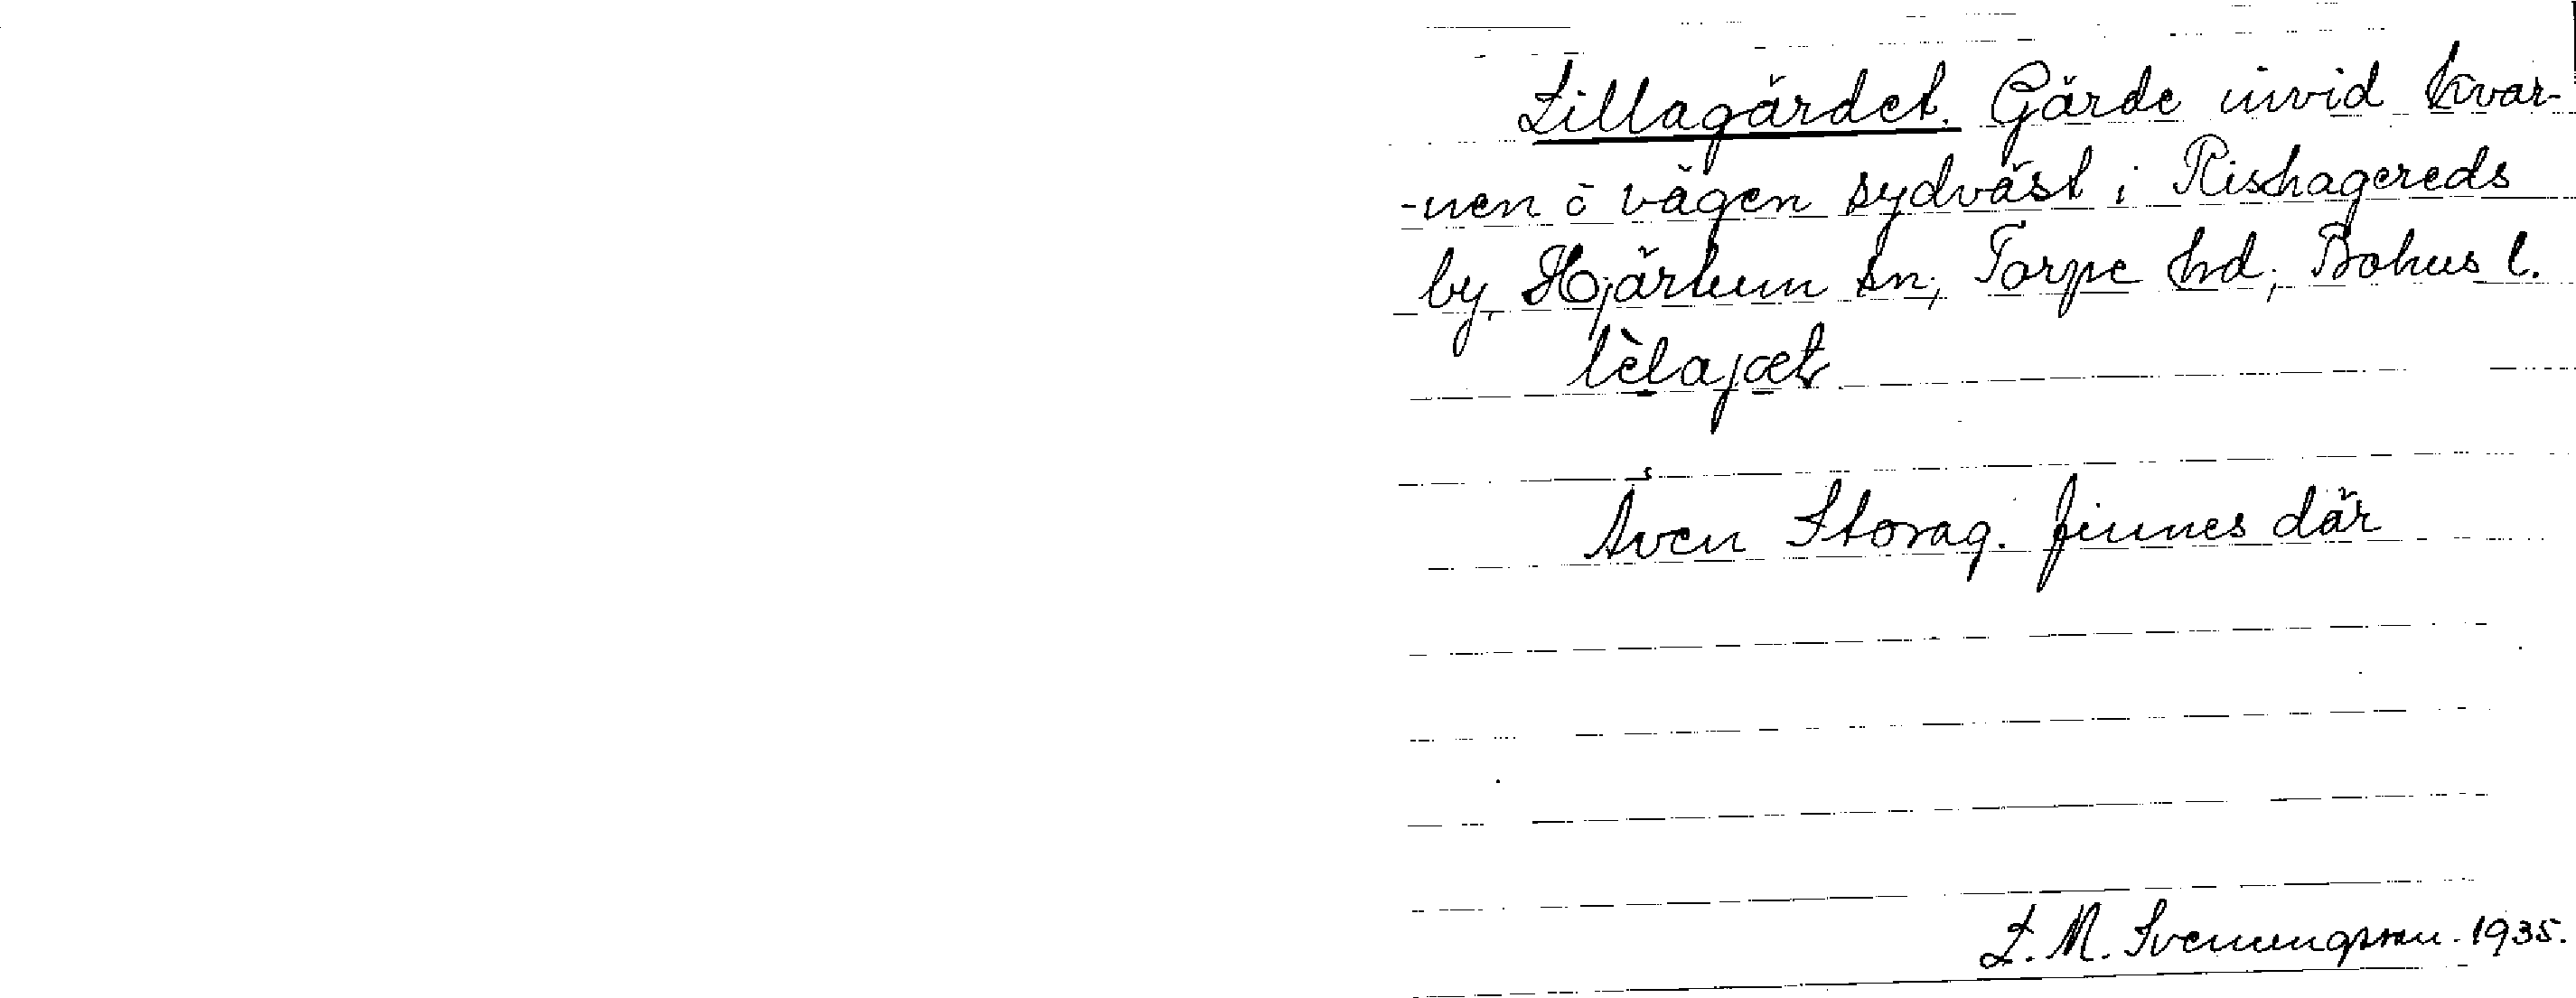 Lillagärdet. Gärde invid kvar-
-nen ō vägen sydväst i Rishagereds
by, Hjärtum sn, Torpe hd, Bohus l.
lèlajæt
Även Storag. finnes där
L. M. Svenungsson. 1935.